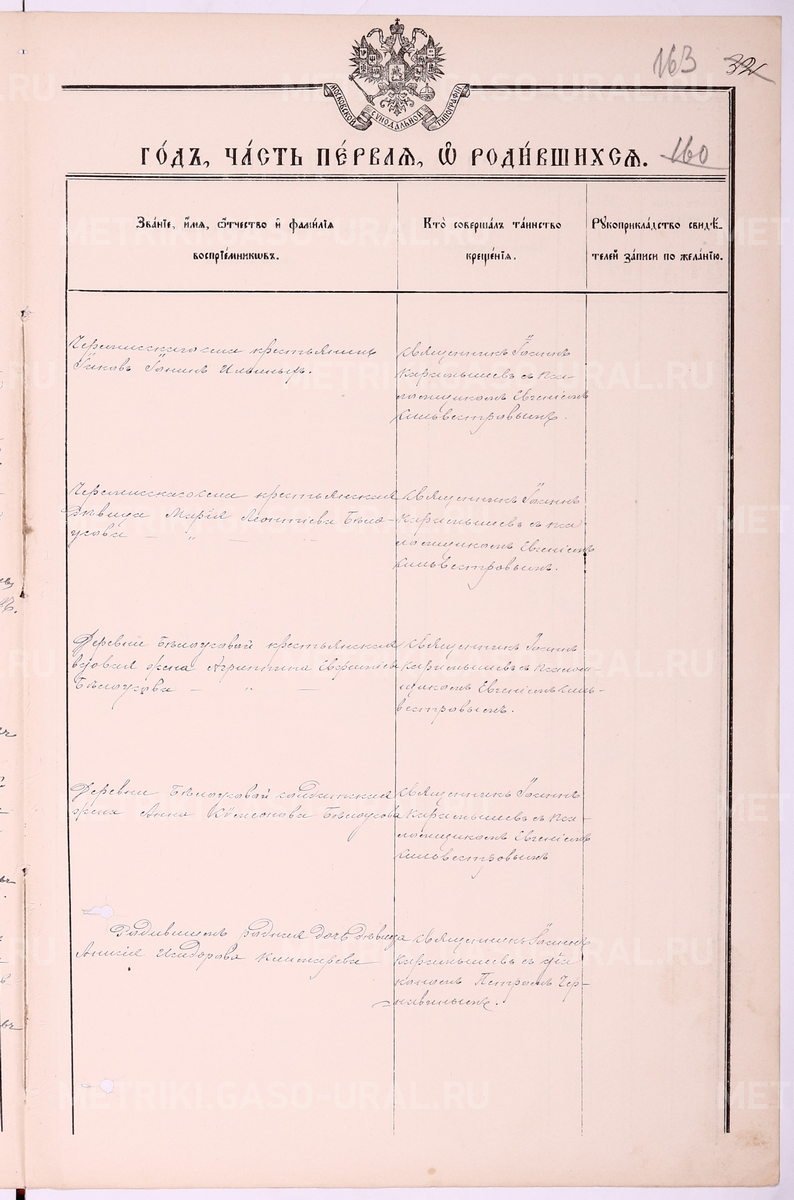 163 32
МОСКОВСКОЙ СѴНОДАЛЬНОЙ ТИПОГРАФІИ
ГОДЪ, ЧАСТЬ ПЕРВАЯ, Ѡ РОДИВШИХСЯ. 160
Званіе, имя, ѿчество и фамилія
воспріемникωвъ.
Кто совершалъ таинство
крещенія.
Рукоприкладство свидѣ-
телей записи по желанію.
Черемисскаго села крестьянинъ
Іаковъ Іоанновъ
Священникъ Іоаннъ
Карамышевъ съ пса-
ломщикомъ Евгеніемъ
Сильвестровымъ.
Черемисскаго села крестьянская
дѣвица Марія Леонтіева Бѣло-
усова — „ — —
Священникъ Іоаннъ
Карамышевъ съ пса-
ломщикомъ Евгеніемъ
Сильвестровымъ.
Деревни Бѣлоусовой крестьянская
вдовая жена Агрипина
Бѣлоусова — „ —
Священникъ Іоаннъ
Карамышевъ съ псалом-
щикомъ Евгеніемъ Силь-
вестровымъ.
Деревни Бѣлоусовой солдатская
жена Анна Бѣлоусова
Священникъ Іоаннъ
Карамышевъ съ пса-
ломщикомъ Евгеніемъ
Сильвестровымъ
родная дочь дѣвица
Исидорова
Священникъ Іоаннъ
Карамышевъ съ діа-
кономъ Петромъ Чер-
навинымъ.
METRIKI.GASO-URAL.RU